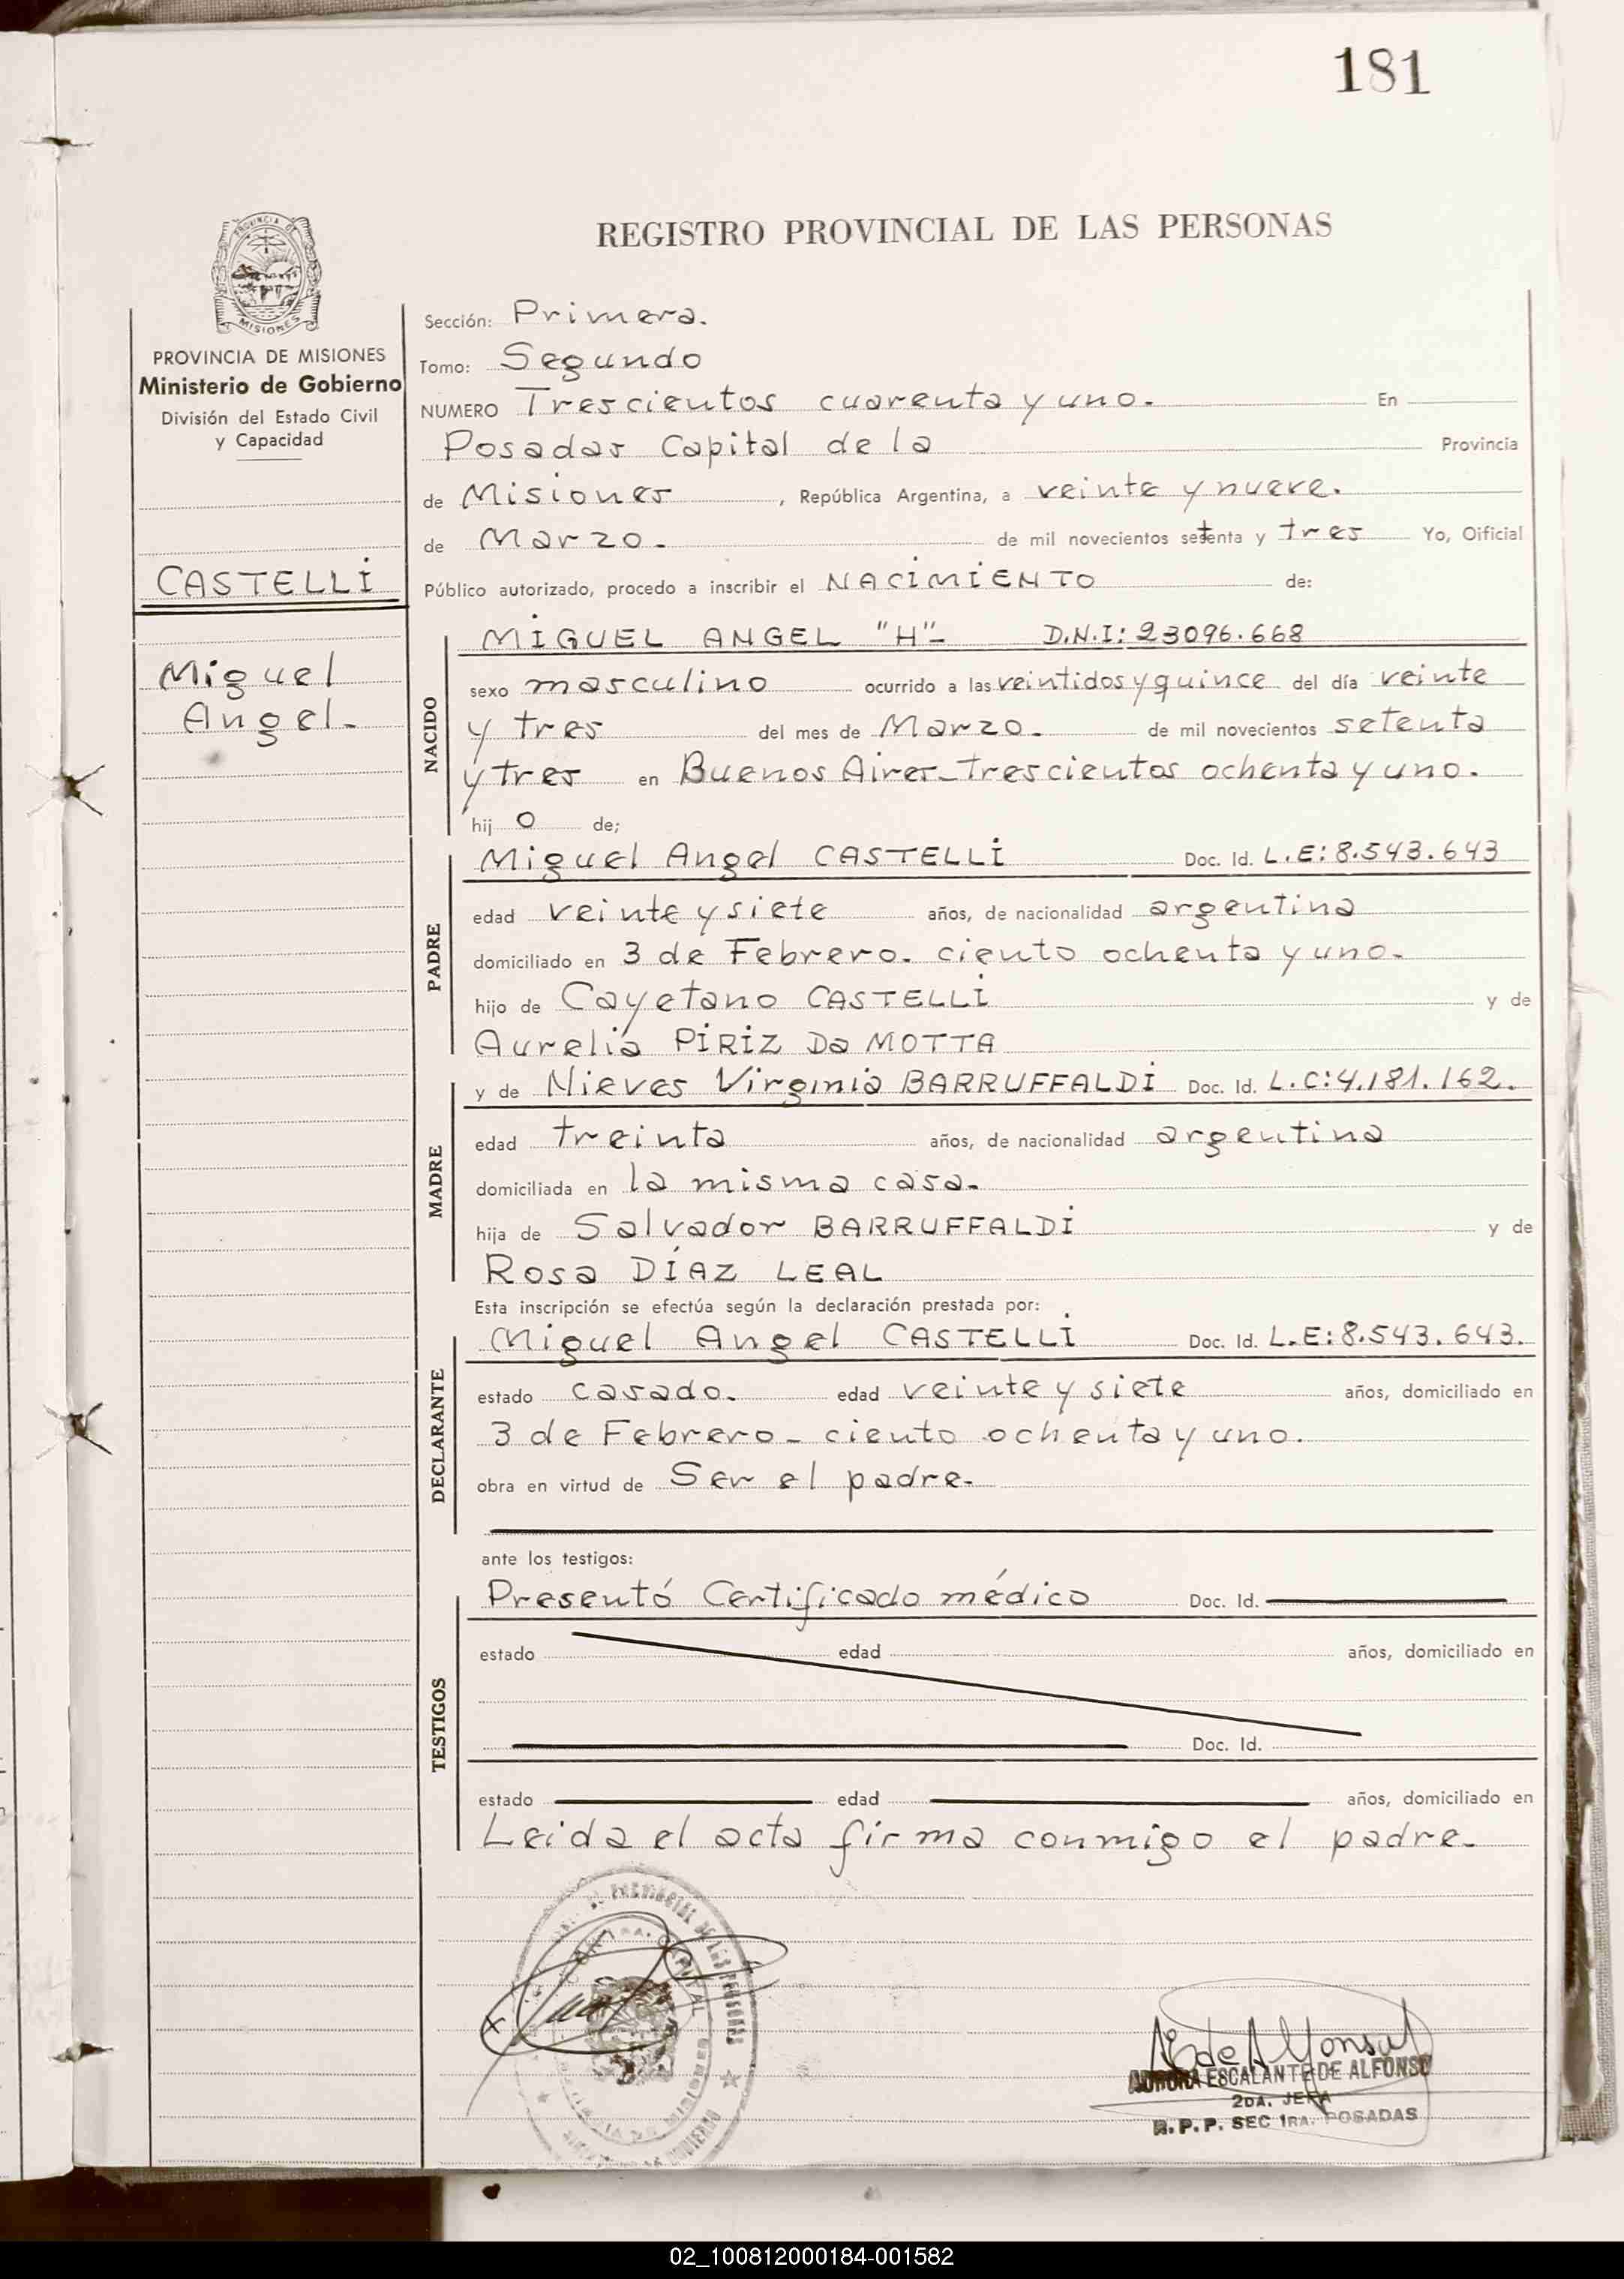 181
REGISTRO PROVINCIAL DE LAS PERSONAS
MISIONES
PROVINCIA DE MISIONES
Ministerio de Gobierno
División del Estado Civil
y Capacidad
CASTELLI
Miguel
Angel-
Sección: Primera.
Tomo: Segundo
NUMERO Trescientos cuarenta y uno. En
Posadas Capital de la Provincia
de Misiones, República Argentina, a veinte y nueve.
de Marzo. de mil novecientos setenta y tres Yo, Oificial
Público autorizado, procedo a inscribir el NACIMIENTO de:
NACIDO
MIGUEL ANGEL "H"- D.N.I: 23096.668
sexo masculino ocurrido a las veintidos y quince del día veinte
y tres del mes de Marzo. de mil novecientos setenta
y tres en Buenos Aires-trescientos ochenta y uno.
hij o de;
PADRE
Miguel Angel CASTELLI Doc. Id. L.E: 8.543.643
edad veinte y siete años, de nacionalidad argentina
domiciliado en 3 de Febrero. ciento ochenta y uno.
hijo de Cayetano CASTELLI y de
Aurelia PIRIZ Da MOTTA
MADRE
y de Nieves Virginia BARRUFFALDI Doc. Id. L.C: 4.181.162.
edad treinta años, de nacionalidad argentina
domiciliada en la misma casa.
hija de Salvador BARRUFFALDI y de
Rosa DÍAZ LEAL
Esta inscripción se efectúa según la declaración prestada por:
DECLARANTE
Miguel Angel CASTELLI Doc. Id. L.E: 8.543.643.
estado casado. edad veinte y siete años, domiciliado en
3 de Febrero- ciento ochenta y uno.
obra en virtud de Ser el padre.
ante los testigos:
TESTIGOS
Presentó Certificado médico Doc. Id.
estado edad años, domiciliado en
Doc. Id.
estado edad años, domiciliado en
Leida el acta firma conmigo el padre.
A. E. de Alfonso
AURORA ESCALANTE DE ALFONSO
2DA. JEFA
R.P.P. SEC 1RA. POSADAS
02_100812000184-001582